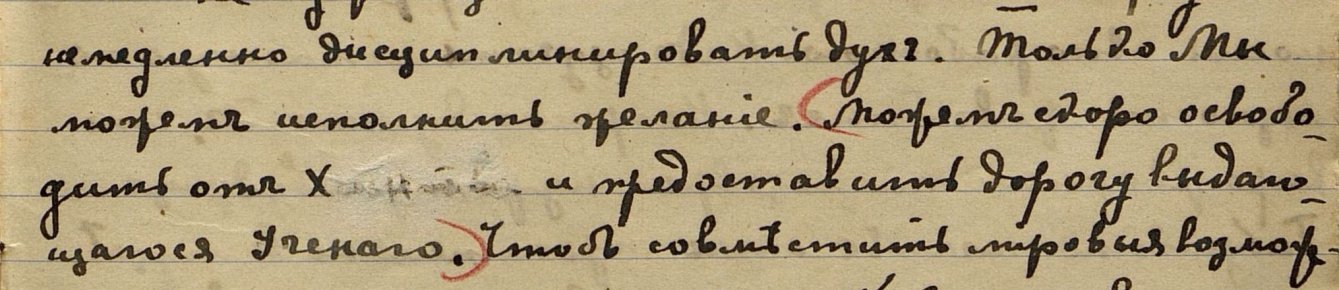 немедленно дисциплинировать духъ. Только Мы
можемъ исполнить желаніе. (Можемъ скоро освобо-
дить отъ X и предоставить дорогу выдаю-
щагося Ученаго.) Чтобъ совмѣстить міровыя возмож-